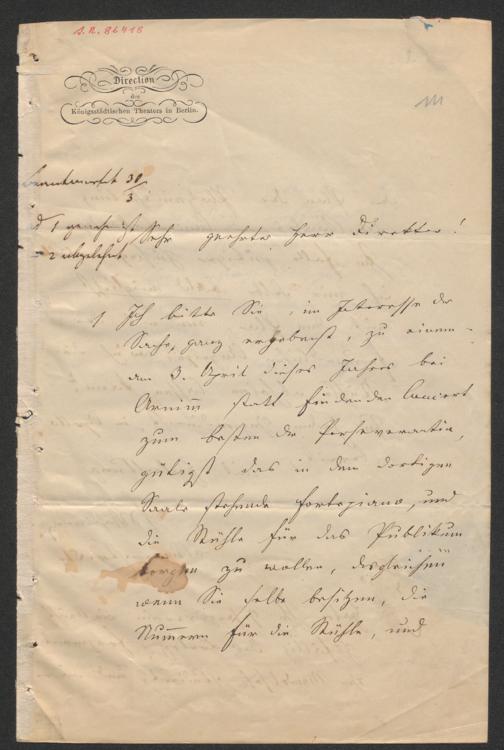 S.R. 86416
Direction
des
Königsstädtischen Theaters in Berlin.
beantwortet 30/3
1 genehmigt
2 abgelehnt
Sehr geehrter Herr Direktor!
1 Ich bitte Sie, im Interesse der
Sache, ganz ergebenst, zu einem
am 3. April dieses Jahres bei
Arnim statt findenden Concert
zum besten der Perseverantia,
gütigst das in dem dortigen
Saale stehende Fortepiano, und
die Stühle für das Publikum
borgen zu wollen, desgleichen
wenn Sie selbe besitzen, die
Nummern für die Stühle, und